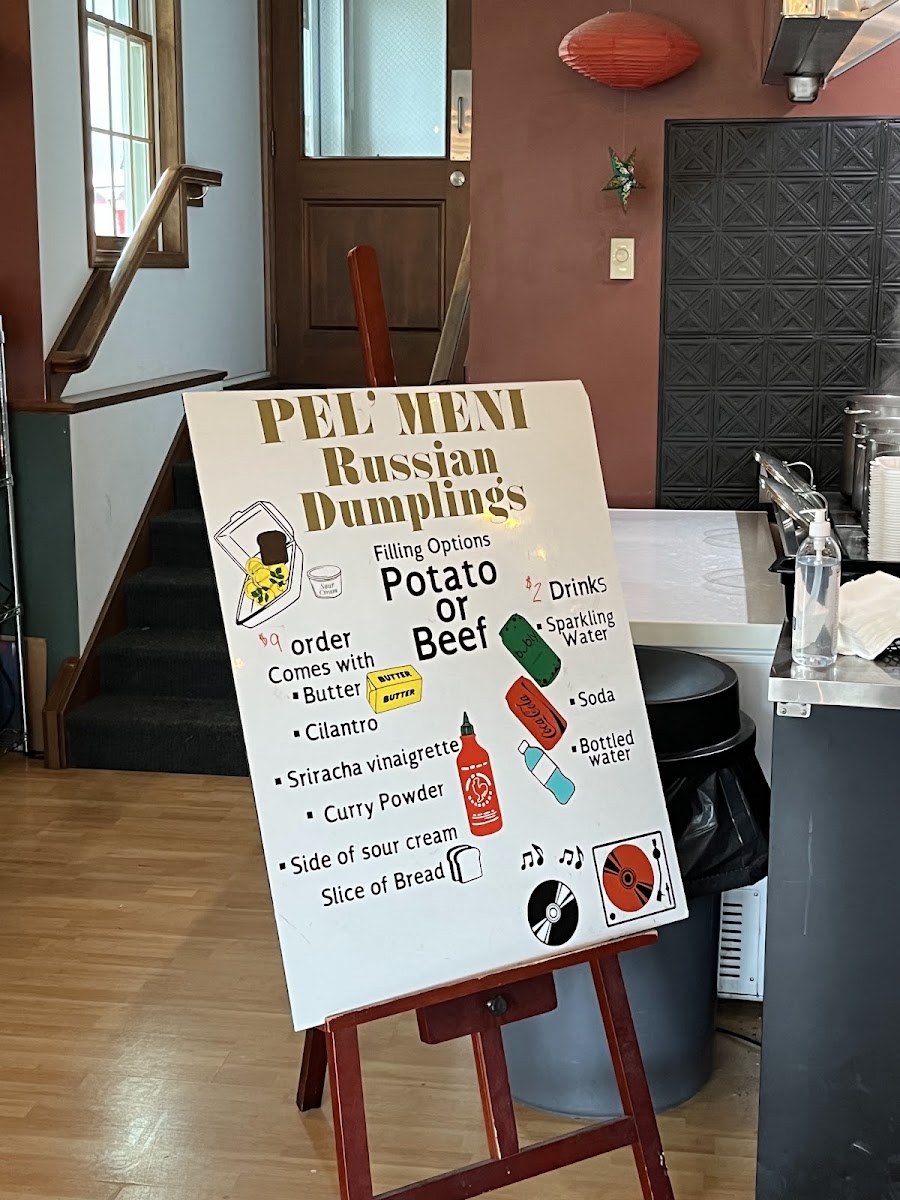 PEL' MENI
Russian
Dumplings
Filling Options
Potato
or
Beef
Sour
Cream
$9 order
Comes with
▪ Butter
▪ Cilantro
▪ Sriracha vinaigrette
▪ Curry Powder
▪ Side of sour cream
Slice of Bread
BUTTER
BUTTER
$2 Drinks
▪ Sparkling
Water
bubly
▪ Soda
Coca-Cola
▪ Bottled
water